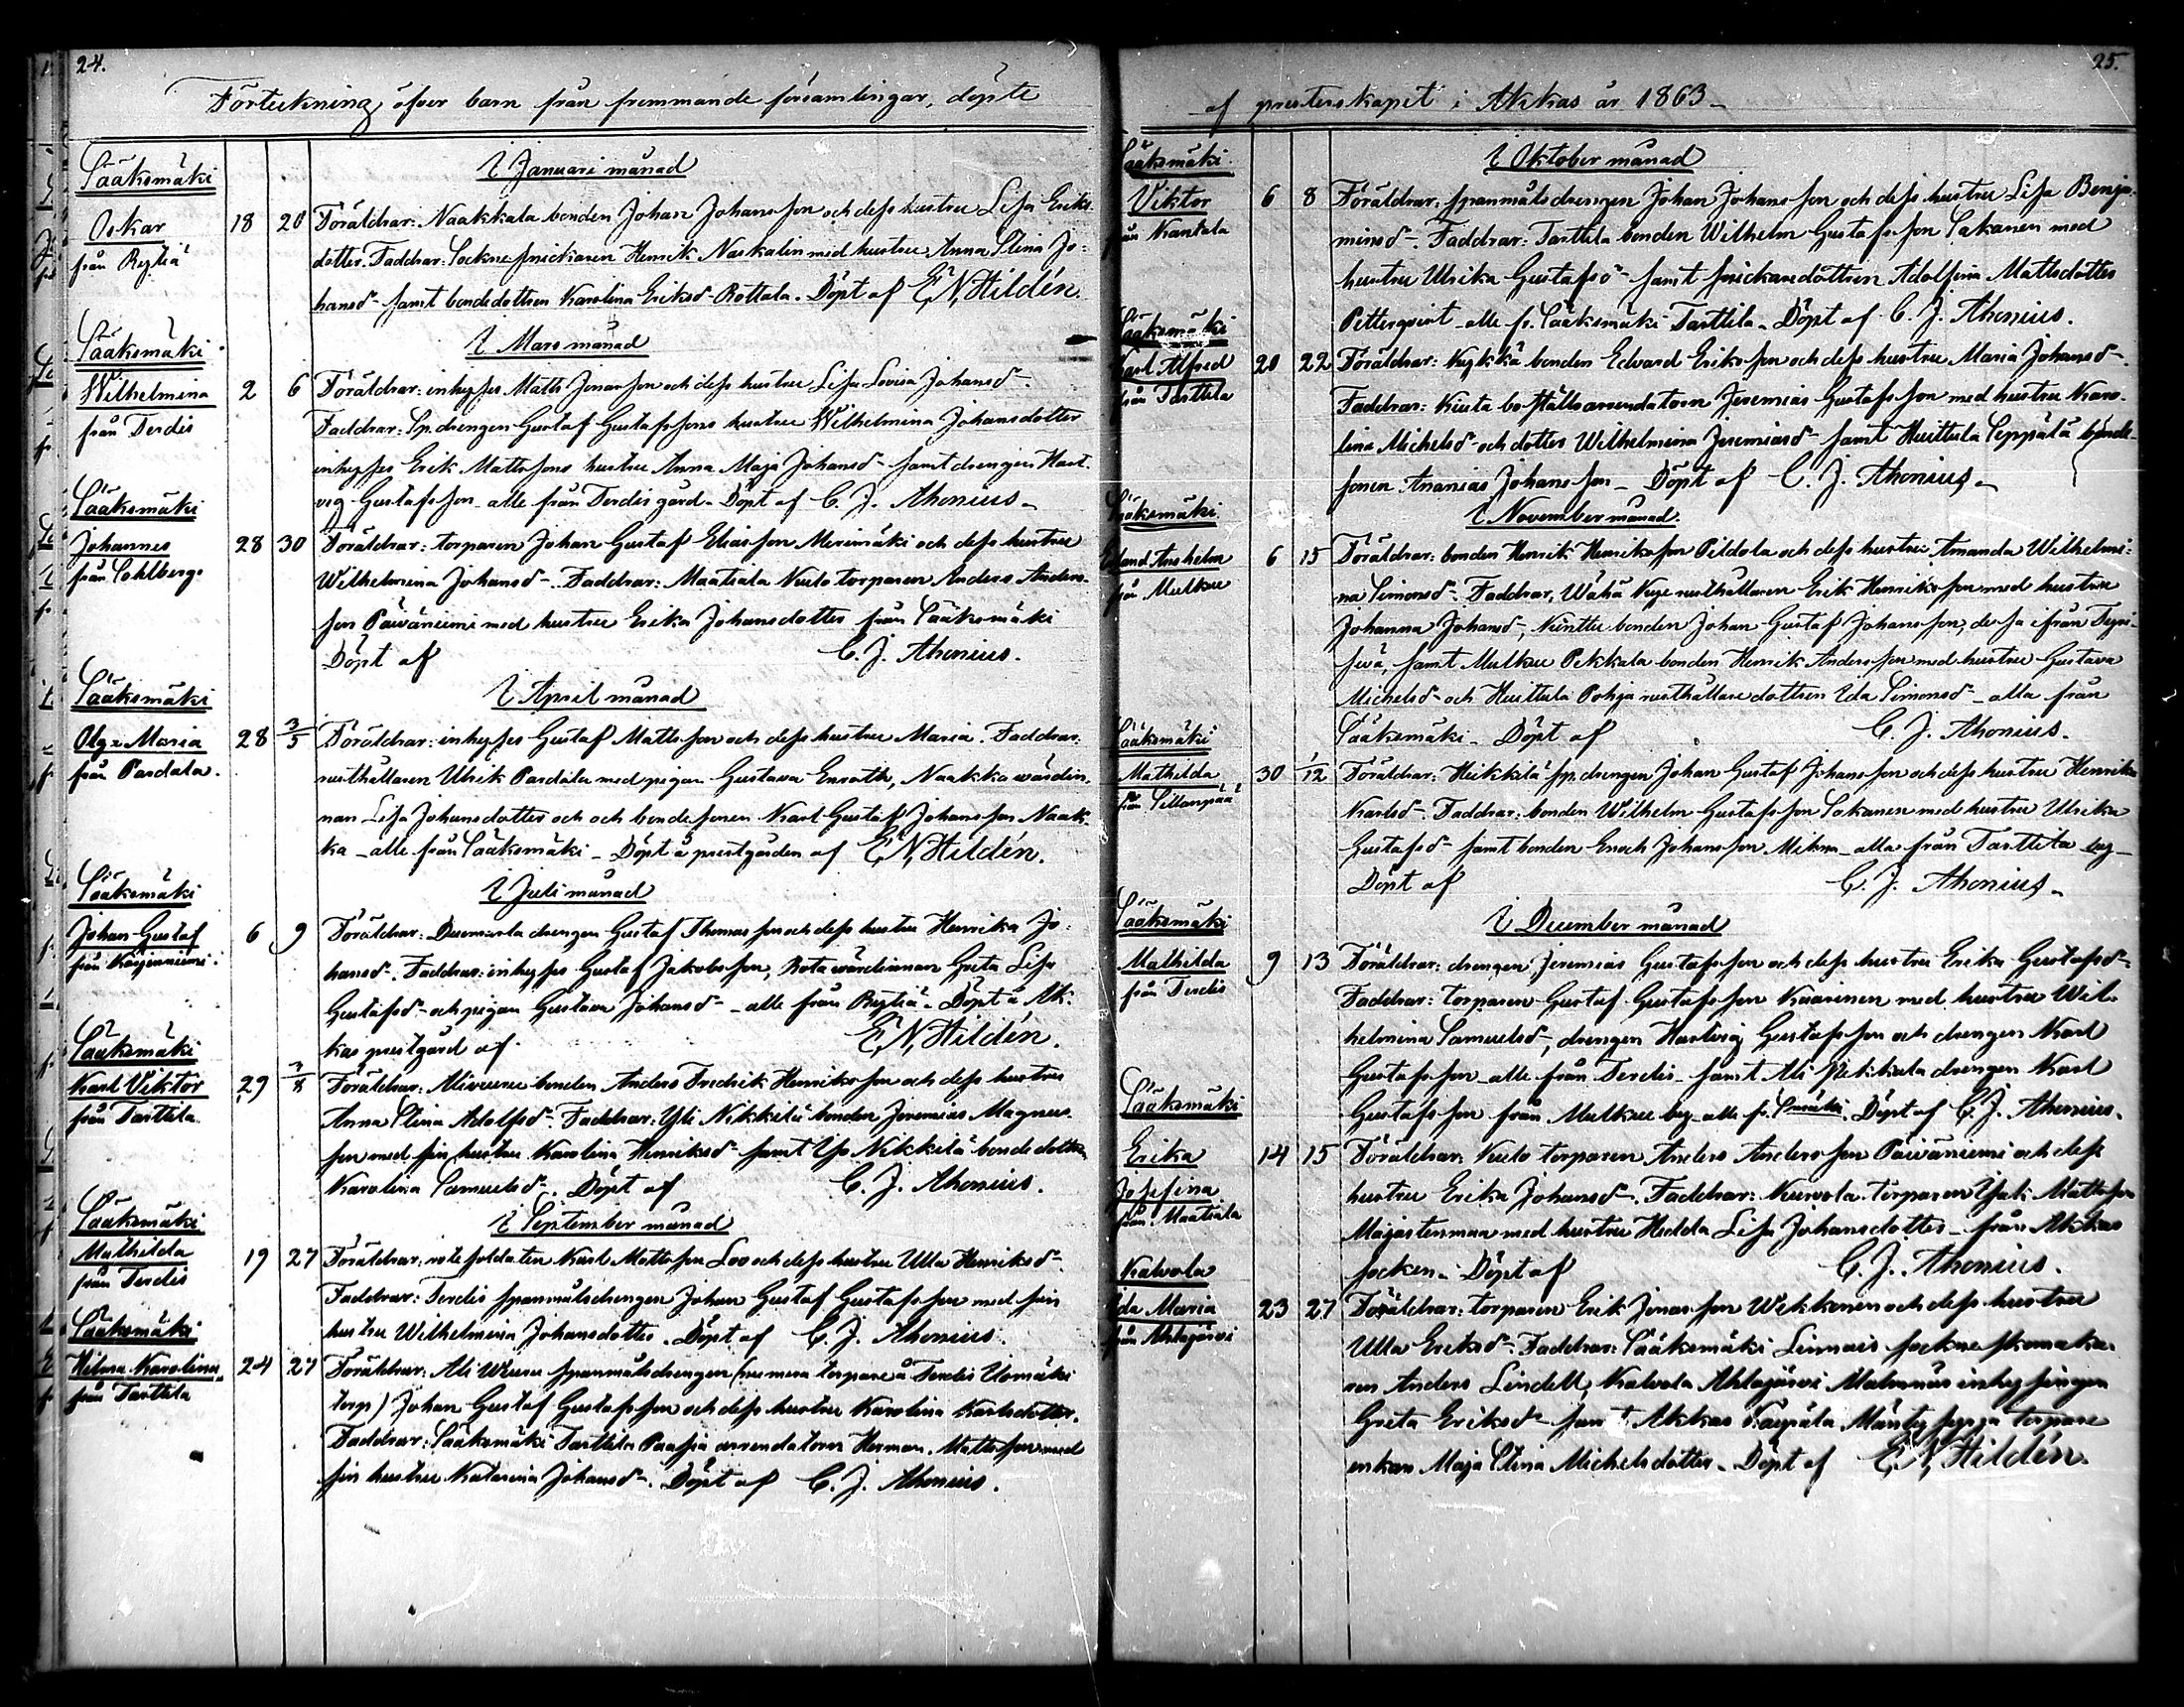 24.
Förteckning öfver barn från fremmande församlingar, döpte
I Januari månad
Sääksmäki
Oskar 18 20 Föräldrar: Naakkala bonden Johan Johansson och dess hustru Lisa Eriks-
från Rytiä dotter. Faddrar: Sockne snickaren Henrik Naskalin med hustru Anna Stina Jo-
hansd- samt bondedottren Karolina Eriksd- Rottala. Döpt af E N Hildén.
Sääksmäki
I Mars månad
Wilhelmina 2 6 Föräldrar: inhyses Matts Jonasson och dess hustru Lisa Lovisa Johansd-.
från Terdis Faddrar: Sp. drengen Gustaf Gustafssons hustru Wilhelmina Johansdotter
inhyses Erik Mattssons hustru Anna Maja Johansd- samt drengen Hart-
vig Gustafsson - alle från Terdis gård - Döpt af C. J. Ahonius -
Sääksmäki
Johannes 28 30 Föräldrar: torparen Johan Gustaf Eliasson Merimäki och dess hustru
från Sohlberg Wilhelmina Johansd-. Faddrar: Maatiala Nulo torparen Anders Anders-
son Päiväniemi med hustru Erika Johansdotter från Sääksmäki
Döpt af C. J. Ahonius.
Sääksmäki
I April månad
Olga Maria 28 3/5 Föräldrar: inhyses Gustaf Mattsson och dess hustru Maria. Faddrar:
från Pardala. rusthållaren Ulrik Pardala med pigan Gustava Enroth, Naakka wärdin-
nan Lisa Johansdotter och och bondesonen Karl Gustaf Johansson Naak-
ka - alle från Sääksmäki - Döpt å prestgården af E N Hildén.
Sääksmäki
I Juli månad
Johan Gustaf 6 9 Föräldrar: drengen Gustaf Thomasson och dess hustru Henrika Jo-
från hansd-. Faddrar: inhyses Gustaf Jakobsson, Rota wärdinnan Greta Lisa
Gustafsd- och pigan Gustava Johansd- - alle från Rytiä - Döpt å Ak-
kas prestgård af E N Hildén.
Sääksmäki
Karl Viktor 29 3/8 Föräldrar: bonden Anders Fredrik Henriksson och dess hustru
från Tarttila. Anna Stina Adolfsd-. Faddrar: Yli Nikkilä bonden Jeremias Magnus-
son med sin hustru Karolina Henriksd- samt Nikkilä bondedottren
Karolina Samuelsd-. Döpt af C. J. Ahonius.
Sääksmäki
I September månad
Mathilda 19 27 Föräldrar: rotesoldaten Karl Mattsson Loo och dess hustru Ulla Henriksd-.
från Terdis Faddrar: Terdis spanmålsdrengen Johan Gustaf Gustafsson med sin
hustru Wilhelmina Johansdotter. Döpt af C. J. Ahonius.
Sääksmäki
Hilma Karolina 24 27 Föräldrar: Ali spanmålsdrengen (numera torpare å Terdis Uomäki
från Tarttila torp) Johan Gustaf Gustafsson och dess hustru Karolina Karlsdotter.
Faddrar: Sääksmäki Tarttila arrendatorn Herman Mattsson med
sin hustru Katarina Johansd-. Döpt af C. J. Ahonius.
25.
af presterskapet i Akkas år 1863 -
Sääksmäki
I Oktober månad
Viktor 6 8 Föräldrar: spanmålsdrengen Johan Johansson och dess hustru Lisa Benja-
från Kantala minsd-. Faddrar: Tarttila bonden Wilhelm Gustafsson Sakanen med
hustru Ulrika Gustafsd- samt snickaredottren Adolfina Mattsdotter
Petterqvist - alle fr. Sääksmäki Tarttila - Döpt af C. J. Ahonius.
Sääksmäki
Karl Alfred 20 22 Föräldrar: Nykkä bonden Edvard Eriksson och dess hustru Maria Johansd-.
från Tarttila Faddrar: boställsarrendatorn Jeremias Gustafsson med hustru Karo-
lina Michelsd- och dotter Wilhelmina Jeremiasd- samt Huittula Seppälä bonde-
sonen Ananias Johansson - Döpt af C. J. Ahonius -
Sääksmäki
I November månad.
Anshelm 6 15 Föräldrar: bonden Henrik Henriksson Pildola och dess hustru Amanda Wilhelmi-
från Mulkku na Simonsd-. Faddrar, Wähä rusthållaren Erik Henriksson med hustru
Johanna Johansd-, bonden Johan Gustaf Johansson, dessa ifrån
samt Mulkku Pekkala bonden Henrik Andersson med hustru Gustava
Michelsd- och Huittula Pohja rusthållaredottren Eda Simonsd- - alla från
Sääksmäki - Döpt af C. J. Ahonius.
Sääksmäki
Mathilda 30 1/12 Föräldrar: Heikkilä sp. drengen Johan Gustaf Johansson och dess hustru Henrika
från Sillanpää Karlsd-. Faddrar: bonden Wilhelm Gustafsson Sakanen med hustru Ulrika
Gustafsd- samt bonden Enoch Johansson - alla från Tarttila by -
Döpt af C. J. Ahonius -
Sääksmäki
I December månad
Mathilda 9 13 Föräldrar: drengen Jeremias Gustafsson och dess hustru Erika Gustafsd-.
från Terdis Faddrar: torparen Gustaf Gustafsson Kaarinen med hustru Wil-
helmina Samuelsd-, drengen Hartvig Gustafsson och drengen Karl
Gustafsson - alle från Terdis - samt Ali Pekkala drengen Karl
Gustafsson från Mulkku by - alle fr. Smäki. Döpt af C. J. Ahonius.
Sääksmäki
Erika 14 15 Föräldrar: Nulo torparen Anders Andersson Päiväniemi och dess
Josefina hustru Erika Johansd-. Faddrar: torparen Isak Mattsson
från Maatiala Majastenmaa med hustru Hedda Lisa Johansdotter - från Akkas
socken - Döpt af C. J. Ahonius.
Kalvola
Ida Maria 23 27 Föräldrar: torparen Erik Jonasson Wekkonen och dess hustru
från Ahlajärvi Ulla Eriksd-. Faddrar: Sääksmäki Linnais socknesko­maka-
ren Anders Lindell, Kalvola Ahlajärvi inhysingen
Greta Eriksd- samt Akkas torpare
enkan Maja Stina Michelsdotter - Döpt af E N Hildén.